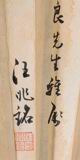 良先生雅屬
汪兆銘